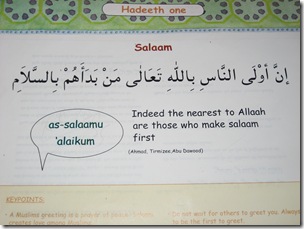 Hadeeth one
Salaam
إِنَّ أَوْلَى النَّاسِ بِاللَّهِ تَعَالَى مَنْ بَدَأَهُمْ بِالسَّلَامِ
as-salaamu
'alaikum
Indeed the nearest to Allaah
are those who make salaam
first
(Ahmad, Tirmizee, Abu Dawood)
KEYPOINTS:
· A Muslims greeting is a
creates love among Muslims
Do not wait for others to greet you. Always
be the first to greet.